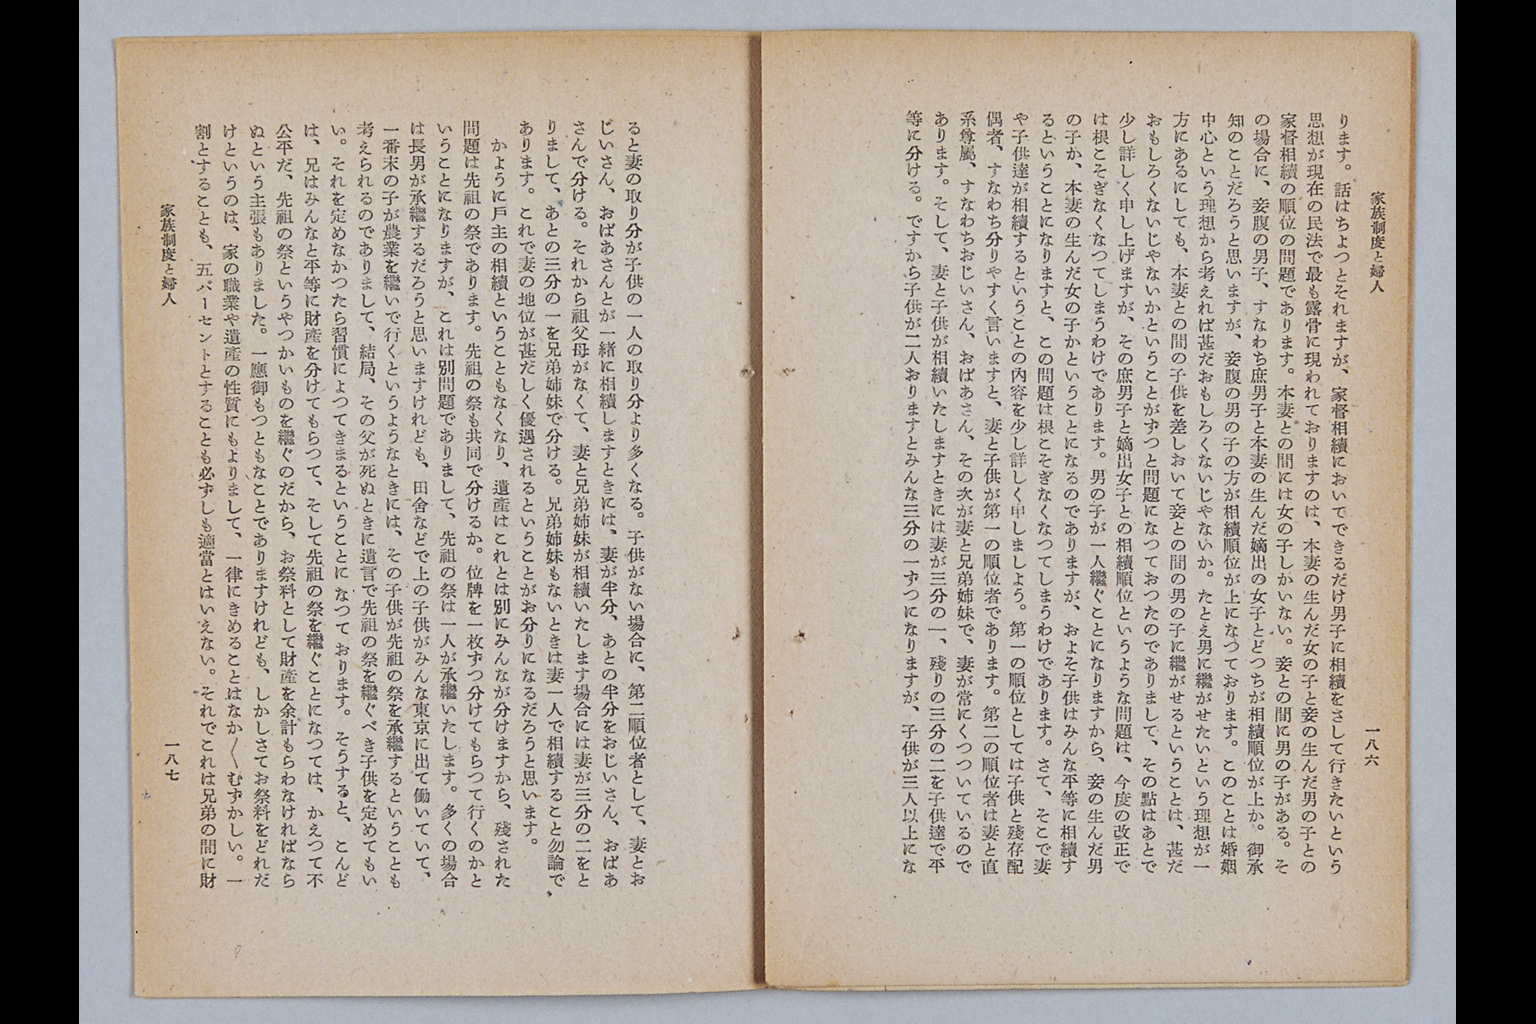 家族制度と婦人
一八六
ります。話はちよつとそれますが、家督相續においてできるだけ男子に相續をさして行きたいという
思想が現在の民法で最も露骨に現われておりますのは、本妻の生んだ女の子と妾の生んだ男の子との
家督相續の順位の問題であります。本妻との間には女の子しかいない。妾との間に男の子がある。そ
の場合に、妾腹の男子、すなわち庶男子と本妻の生んだ嫡出の女子とどつちが相續順位が上か。御承
知のことだろうと思いますが、妾腹の男の子の方が相續順位が上になつております。このことは婚姻
中心という理想から考えれば甚だおもしろくないじやないか。たとえ男に繼がせたいという理想が一
方にあるにしても、本妻との間の子供を差しおいて妾との間の男の子に繼がせるということは、甚だ
おもしろくないじやないかということがずつと問題になつておつたのでありまして、その點はあとで
少し詳しく申し上げますが、その庶男子と嫡出女子との相續順位というような問題は、今度の改正で
は根こそぎなくなつてしまうわけであります。男の子が一人繼ぐことになりますから、妾の生んだ男
の子か、本妻の生んだ女の子かということになるのでありますが、およそ子供はみんな平等に相續す
るということになりますと、この問題は根こそぎなくなつてしまうわけであります。さて、そこで妻
や子供達が相續するということの內容を少し詳しく申しましよう。第一の順位としては子供と殘存配
偶者、すなわち分りやすく言いますと、妻と子供が第一の順位者であります。第二の順位者は妻と直
系尊屬、すなわちおじいさん、おばあさん、その次が妻と兄弟姉妹で、妻が常にくつついているので
あります。そして、妻と子供が相續いたしますときには妻が三分の一、殘りの三分の二を子供達で平
等に分ける。ですから子供が二人おりますとみんな三分の一ずつになりますが、子供が三人以上にな
ると妻の取り分が子供の一人の取り分より多くなる。子供がない場合に、第二順位者として、妻とお
じいさん、おばあさんとが一緒に相續しますときには、妻が半分、あとの半分をおじいさん、おばあ
さんで分ける。それから祖父母がなくて、妻と兄弟姉妹が相續いたします場合には妻が三分の二をと
りまして、あとの三分の一を兄弟姉妹で分ける。兄弟姉妹もないときは妻一人で相續すること勿論で
あります。これで妻の地位が甚だしく優遇されるということがお分りになるだろうと思います。
かように戶主の相續ということもなくなり、遺產はこれとは別にみんなが分けますから、殘された
問題は先祖の祭であります。先祖の祭も共同で分けるか。位牌を一枚ずつ分けてもらつて行くのかと
いうことになりますが、これは別問題でありまして、先祖の祭は一人が承繼いたします。多くの場合
は長男が承繼するだろうと思いますけれども、田舍などで上の子供がみんな東京に出て働いていて、
一番末の子が農業を繼いで行くというようなときには、その子供が先祖の祭を承繼するということも
考えられるのでありまして、結局、その父が死ぬときに遺言で先祖の祭を繼ぐべき子供を定めてもい
い。それを定めなかつたら習慣によつてきまるということになつております。そうすると、こんど
は、兄はみんなと平等に財產を分けてもらつて、そして先祖の祭を繼ぐことになつては、かえつて不
公平だ、先祖の祭というやつかいものを繼ぐのだから、お祭料として財產を余計もらわなければなら
ぬという主張もありました。一應御もつともなことでありますけれども、しかしさてお祭料をどれだ
けというのは、家の職業や遺產の性質にもよりまして、一律にきめることはなか〱むずかしい。一
割とすることも、五パーセントとすることも必ずしも適當とはいえない。それでこれは兄弟の間に財
家族制度と婦人
一八七